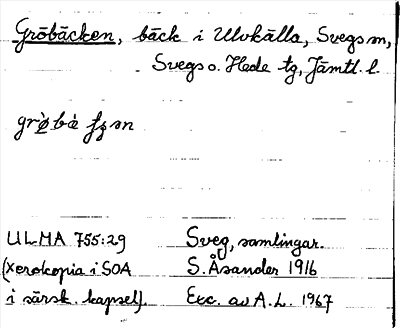 Gröbäcken, bäck i Ulvkälla, Svegs sn,
Svegs o. Hede tg, Jämtl. l.
ULMA 755:29 Sveg, samlingar.
(xerokopia i SOA S. Åsander 1916
i särsk. kapsel). Exc. av A.L. 1967